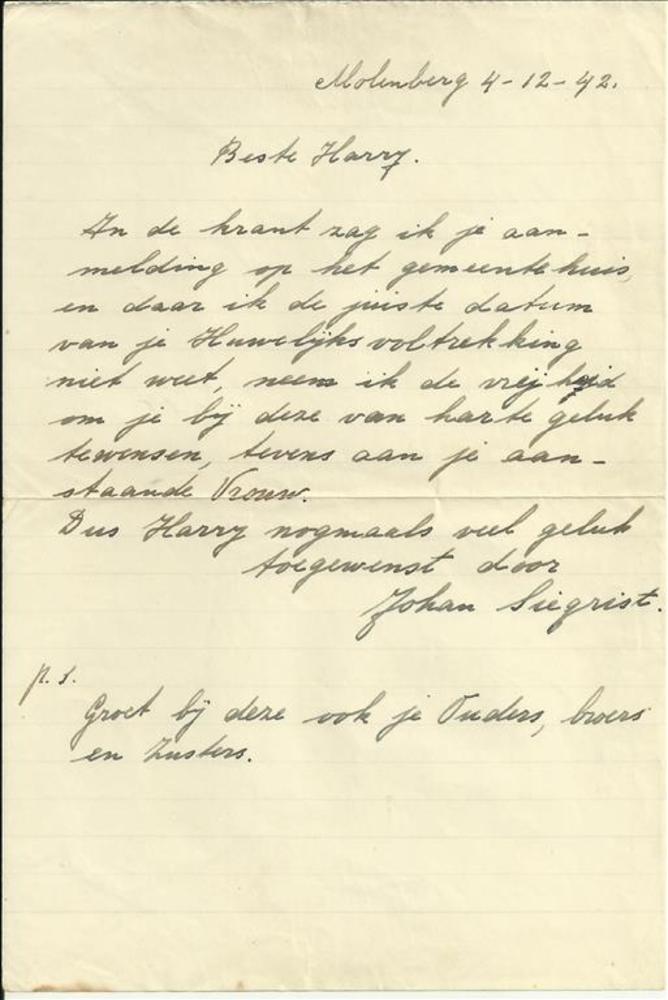 Molenberg 4-12-42.
Beste Harry.
In de krant zag ik je aan-
melding op het gemeentehuis,
en daar ik de juiste datum
van je Huwelijks voltrekking
niet weet, neem ik de vrijheid
om je bij deze van harte geluk
tewensen, tevens aan je aan-
staande Vrouw.
Dus Harry nogmaals veel geluk
toegewenst door
Johan Siegrist.
p.s.
Groet bij deze ook je Ouders, broers
en Zusters.